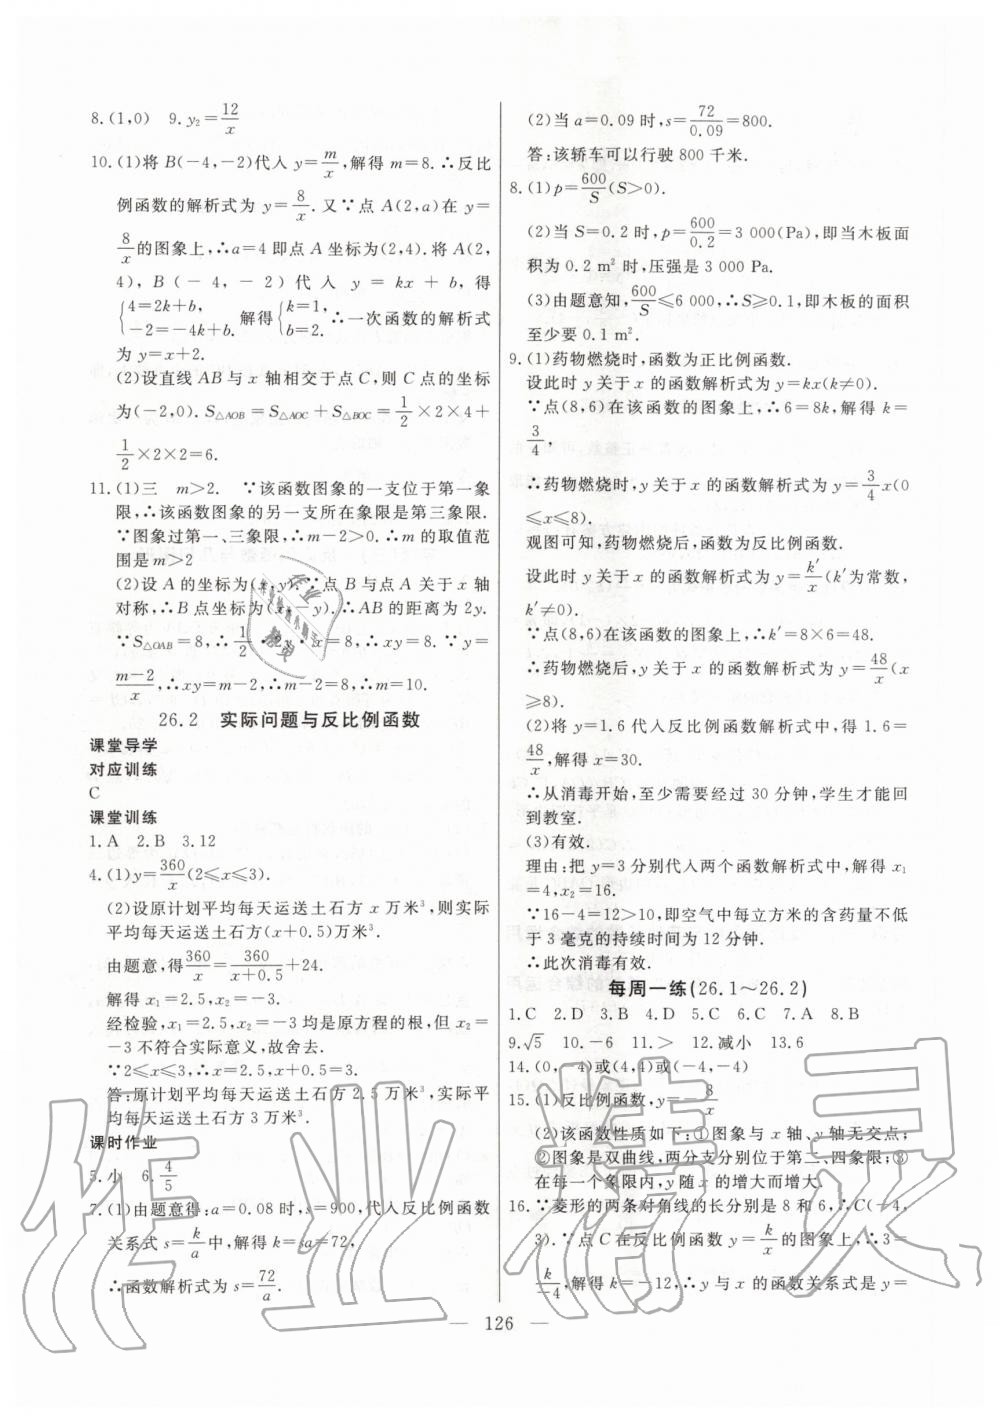 8.(1,0)　9.y₂=12/x
10.(1)将 B(-4,-2)代入 y=m/x,解得 m=8.∴反比
例函数的解析式为 y=8/x.又∵点 A(2,a)在 y=
8/x的图象上,∴a=4 即点 A 坐标为(2,4).将 A(2,
4),B(-4,-2)代入 y=kx+b,得
{4=2k+b, -2=-4k+b. 解得{k=1, b=2. ∴一次函数的解析式
为 y=x+2.
(2)设直线 AB 与 x 轴相交于点 C,则 C 点的坐标
为(-2,0). S△AOB=S△AOC+S△BOC=1/2×2×4+
1/2×2×2=6.
11.(1)三　m>2.　∵该函数图象的一支位于第一象
限,∴该函数图象的另一支所在象限是第三象限.
∵图象过第一、三象限,∴m-2>0.∴m 的取值范
围是 m>2
(2)设 A 的坐标为(x,y).∵点 B 与点 A 关于 x 轴
对称,∴B 点坐标为(x,-y).∴AB 的距离为 2y.
∵S△OAB=8,∴1/2·2y·x=8,∴xy=8.∵y=
m-2/x,∴xy=m-2,∴m-2=8,∴m=10.
26.2　实际问题与反比例函数
课堂导学
对应训练
C
课堂训练
1.A　2.B　3.12
4.(1)y=360/x(2≤x≤3).
(2)设原计划平均每天运送土石方 x 万米³,则实际
平均每天运送土石方(x+0.5)万米³.
由题意,得360/x=360/x+0.5+24.
解得 x₁=2.5,x₂=-3.
经检验,x₁=2.5,x₂=-3 均是原方程的根,但 x₂=
-3 不符合实际意义,故舍去.
∵2≤x≤3,
答:原计划平均每天运送土石方 2.5 万米³,实际平
均每天运送土石方 3 万米³.
课时作业
5.小　6.4/5
7.(1)由题意得:a=0.08 时,s=900,代入反比例函数
关系式 s=k/a中,解得 k=sa=72,
∴函数解析式为 s=72/a.
(2)当 a=0.09 时,s=72/0.09=800.
答:该轿车可以行驶 800 千米.
8.(1)p=600/S(S>0).
(2)当 S=0.2 时,p=600/0.2=3 000(Pa),即当木板面
积为 0.2 m² 时,压强是 3 000 Pa.
(3)由题意知,600/S≤6 000,∴S≥0.1,即木板的面积
至少要 0.1 m².
9.(1)药物燃烧时,函数为正比例函数.
设此时 y 关于 x 的函数解析式为 y=kx(k≠0).
∵点(8,6)在该函数的图象上,∴6=8k,解得 k=
3/4,
∴药物燃烧时,y 关于 x 的函数解析式为 y=3/4x(0
≤x≤8).
观图可知,药物燃烧后,函数为反比例函数.
设此时 y 关于 x 的函数解析式为 y=k′/x(k′为常数,
k′≠0),
∵点(8,6)在该函数的图象上,∴k′=8×6=48.
∴药物燃烧后,y 关于 x 的函数解析式为 y=48/x(x
≥8).
(2)将 y=1.6 代入反比例函数解析式中,得 1.6=
48/x,解得 x=30.
∴从消毒开始,至少需要经过 30 分钟,学生才能回
到教室.
(3)有效.
理由:把 y=3 分别代入两个函数解析式中,解得 x₁
=4,x₂=16.
∵16-4=12>10,即空气中每立方米的含药量不低
于 3 毫克的持续时间为 12 分钟.
∴此次消毒有效.
每周一练(26.1～26.2)
1.C　2.D　3.B　4.D　5.C　6.C　7.A　8.B
9.√5　10.-6　11.>　12.减小　13.6
14.(0,　4)或(4,4)或(-4,-4)
15.(1)反比例函数,y=-8/x
(2)该函数性质如下:①图象与 x 轴、y轴无交点;
②图象是双曲线,两支分别位于第二、四象限;③
在每一个象限内,y 随 x 的增大而增大.
16.∵菱形的两条对角线的长分别是 8 和 6,∴C(-4,
3).∵点 C 在反比例函数 y=k/x的图象上,∴3=
k/-4,解得 k=-12,∴y 与 x 的函数关系式是 y=
126
作业精灵